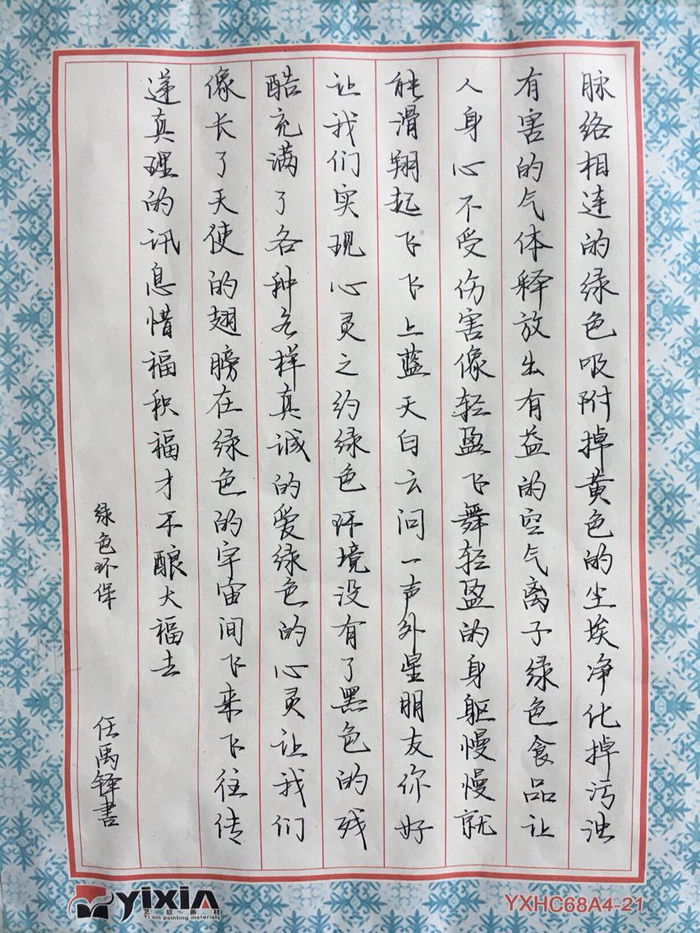 脉络相连的绿色吸附掉黄色的尘埃净化掉污浊
有害的气体释放出有益的空气离子绿色食品让
人身心不受伤害像轻盈飞舞轻盈的身躯慢慢就
能滑翔起飞飞上蓝天白云问一声外星朋友你好
让我们实现心灵之约绿色环境没有了黑色的残
酷充满了各种各样真诚的爱绿色的心灵让我们
像长了天使的翅膀在绿色的宇宙间飞来飞往传
递真理的讯息惜福积福才不酿大福去
绿色环保
任禹铎書
yixin
Yi xin painting materials
YXHC68A4-21